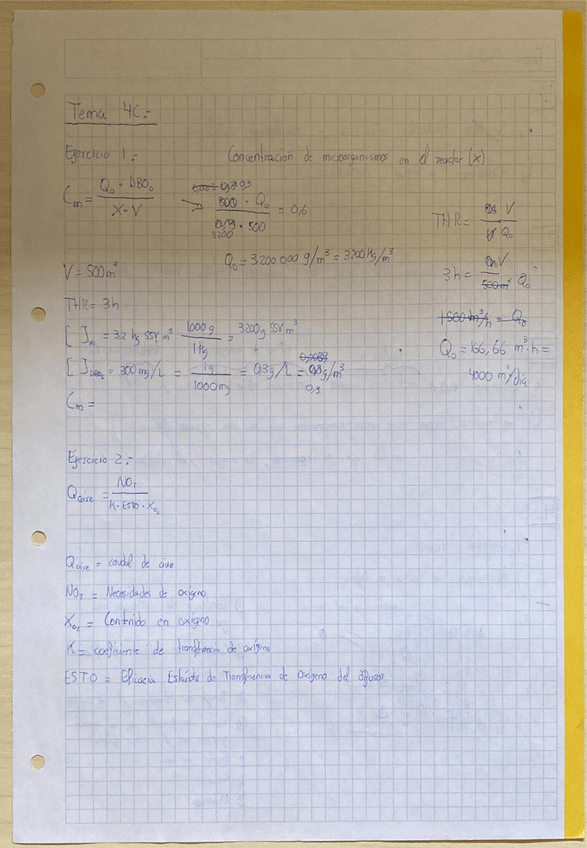 Tema 4C:-
Ejercicio 1:-
Concentración de microorganismos en el reactor (X)
Cm = Q₀ · DBO₀ / X · V
→ 300 · Q₀ / 3200 · 500 = 0,6
THR = V / Q₀
Q₀ = 3200 000 g/m³ = 3200 Kg/m³
3h = V / 500m³ Q₀
V = 500m³
THR = 3h
1500 m³/h = Q₀
[ ]m = 3,2 kg SSV m³ 1000g / 1Kg = 3200g SSV m³
Q₀ = 166,66 m³·h =
4000 m³/día
[ ]DBO₀ = 300 mg/L = 1g / 1000mg = 0,3g/L = g/m³
0,3
Cm =
Ejercicio 2:-
Qaire = NO_T / K · ESTO · X_O₂
Qaire = caudal de aire
NO_T = Necesidades de oxígeno
X_O₂ = Contenido en oxígeno
K = coeficiente de transferencia de oxígeno
ESTO = Eficacia Estándar de Transferencia de Oxígeno del difusor